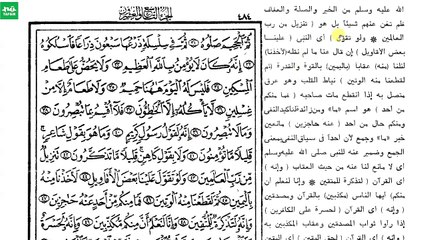 الله عليه وسلم من الخير والصلة والعفاف
فلم تغن عنهم شيئا بل هو ( تنزيل من رب
العالمين ۝ ولو تقول ) أى النبى ( علينا
بعض الأقاويل ) إن قال عنا ما لم نقله (لأخذنا)
لنلنا (منه) عقابا (باليمين) بالقوة والقدرة ( ثم
لقطعنا منه الوتين ) نياط القلب وهو عرق
متصل به إذا انقطع مات صاحبه ( فما منكم
من أحد ) هو اسم «ما» ومن زائدة لتأكيد النفى
ومنكم حال من أحد ( عنه حاجزين ) مانعين
خبر «ما» وجمع لان أحدا فى سياق النفى بمعنى
الجمع وضمير عنه للنبى صلى الله عليه وسلم
أى لا مانع لنا عنه من حيث العقاب ( وإنه )
أى القرآن ( لتذكرة للمتقين ۝ وإنا لنعلم أن
منكم ) أيها الناس (مكذبين) بالقرآن ومصدقين
( وإنه ) أى القرآن ( لحسرة على الكافرين )
الجزء التاسع والعشرون
٤٨٤
ثُمَّ الْجَحِيمَ صَلُّوهُ ۝ ثُمَّ فِي سِلْسِلَةٍ ذَرْعُهَا سَبْعُونَ ذِرَاعًا فَاسْلُكُوهُ
۝ إِنَّهُ كَانَ لَا يُؤْمِنُ بِاللَّهِ الْعَظِيمِ ۝ وَلَا يَحُضُّ عَلَىٰ طَعَامِ
الْمِسْكِينِ ۝ فَلَيْسَ لَهُ الْيَوْمَ هَاهُنَا حَمِيمٌ ۝ وَلَا طَعَامٌ إِلَّا مِنْ
غِسْلِينٍ ۝ لَا يَأْكُلُهُ إِلَّا الْخَاطِئُونَ ۝ فَلَا أُقْسِمُ بِمَا تُبْصِرُونَ ۝
وَمَا لَا تُبْصِرُونَ ۝ إِنَّهُ لَقَوْلُ رَسُولٍ كَرِيمٍ ۝ وَمَا هُوَ بِقَوْلِ شَاعِرٍ
قَلِيلًا مَا تُؤْمِنُونَ ۝ وَلَا بِقَوْلِ كَاهِنٍ قَلِيلًا مَا تَذَكَّرُونَ ۝ تَنْزِيلٌ
مِنْ رَبِّ الْعَالَمِينَ ۝ وَلَوْ تَقَوَّلَ عَلَيْنَا بَعْضَ الْأَقَاوِيلِ ۝ لَأَخَذْنَا مِنْهُ
بِالْيَمِينِ ۝ ثُمَّ لَقَطَعْنَا مِنْهُ الْوَتِينَ ۝ فَمَا مِنْكُمْ مِنْ أَحَدٍ عَنْهُ
حَاجِزِينَ ۝ وَإِنَّهُ لَتَذْكِرَةٌ لِلْمُتَّقِينَ ۝ وَإِنَّا لَنَعْلَمُ أَنَّ مِنْكُمْ مُكَذِّبِينَ ۝ وَإِنَّهُ لَحَسْرَةٌ